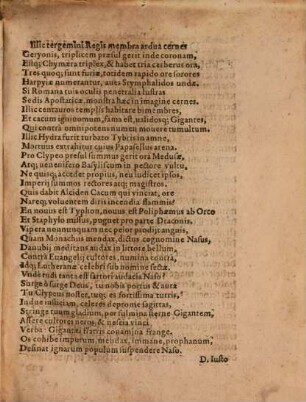 Illic tergemini Regis membra ardua cernes
Geryonis, triplicem præsul gerit inde coronam,
Estq; Chymæra triplex, & habet tria cerberus ora,
Tres quoq; sunt furiæ, totidem rapido ore sorores
Harpyiæ numerantur, aura Stymphalidos undæ.
Si Romana tuis oculis penetralia lustras
Sedis Apostaticæ, monstra hæc in imagine cernes.
Illic centauros templis habitare bimembres,
Et cacum ignivomum, fama est, validosq; Gigantes,
Qui contra omnipotens numen movere tumultum.
Illic Hydra furit turbato Tybris in amne,
Mortuus extrahitur cuius Papasellus arena.
Pro Clypeo præsul summus gerit ora Medusæ,
Atq; venenifero Basyliscum in pectore vultu,
Ne quisq; accedet propius, neu iudicet ipsos,
Imperij summos rectores atq; magistros.
Quis dabit Alciden Cacum qui vinciat, ore
Nareq; voluentem diris incendia flammis?
En nouus est Typhon, nouus est Poliphemus ab Orco
Et Staphylo missus, pugnet pro parte Draconis.
Vipera nonnunquam nec peior prodijt anguis,
Quam Monachus mendax, dictus cognomine Nasus,
Danubij meditans audax in littore bellum,
Contra Euangelij cultores, numina contra,
Lutheranæ celebri sub nomine sectæ.
Unde tibi tanta est sartori audacia Naso?
Surge ô surge Deus, tu nobis portus & aura
Tu Clypeus noster, tuq; es fortissima turris,
Indue iusticiam, celeres depromе sagittas,
Stringe tuum gladium, por fulmina sterne Gigantem,
Assere cultores verbi & nescia vinci
Verba: Giganteis ferris couamina frange.
Os cohibe impurum, mendax, immane, prophanum,
Desinat ignarum populum suspendere Naso.
D. Iusto